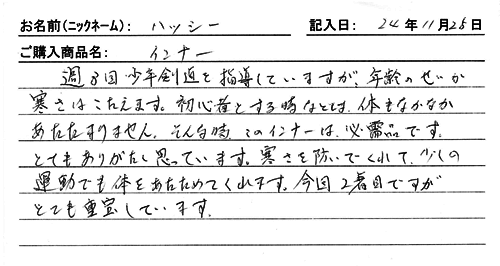 お名前(ニックネーム): ハッシー 記入日: 24年11月25日
ご購入商品名: インナー
週3回少年剣道を指導していますが、年齢のせいか
寒さはこたえます。初心者とする時などは、体もなかなか
あたたまりません。そんな時このインナーは、必需品です。
とてもありがたく思っています。寒さを防いでくれて、少しの
運動でも体をあたためてくれます。今回2着目ですが
とても重宝しています。